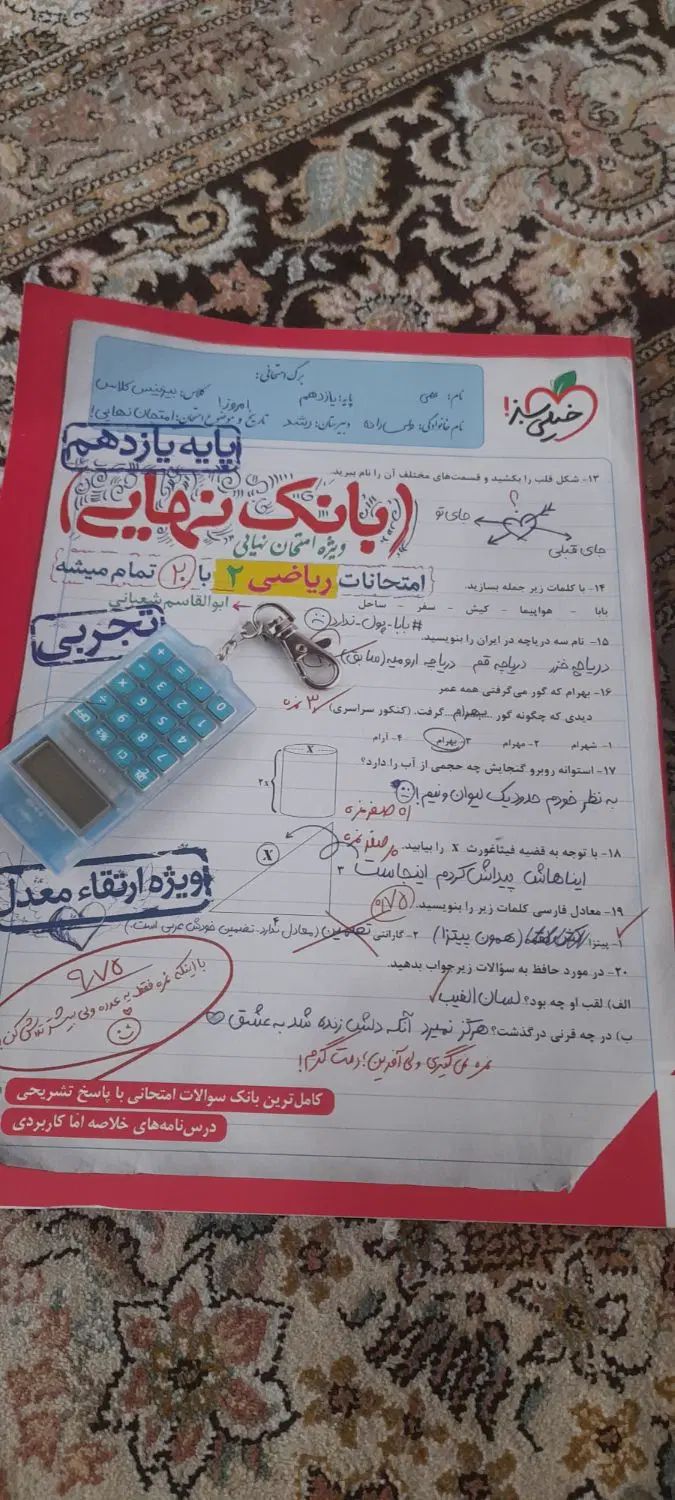 خیلی سبز!
برگ امتحانی:
نام:
پایه: یازدهم
کلاس: بیزینس کلاس
نام خانوادگی:
دبیرستان: رشد
تاریخ و موضوع امتحان: امروز! امتحان نهایی!
پایه یازدهم
۱۳- شکل قلب را بکشید و قسمت‌های مختلف آن را نام ببرید.
؟
جای تو
جای قبلی
(بانک نهایی)
ویژه امتحان نهایی
امتحانات ریاضی ۲ با ۲۰ تمام میشه
ابوالقاسم شعبانی
تجربی
۱۴- با کلمات زیر جمله بسازید.
بابا - هواپیما - کیش - سفر - ساحل
#بابا-پول-ندارد
۱۵- نام سه دریاچه در ایران را بنویسید.
دریاچه خزر دریاچه قم دریاچه ارومیه (سابق)
۱۶- بهرام که گور می‌گرفتی همه عمر
دیدی که چگونه گور بهرام گرفت. (کنکور سراسری)
۳ نمره
۱- شهرام ۲- مهرام ۳- بهرام ۴- آرام
۱۷- استوانه روبرو گنجایش چه حجمی از آب را دارد؟
x
۲x
به نظر خودم حدود یک لیوان و نیم!
صفر نمره
۱۸- با توجه به قضیه فیثاغورث x را بیابید.
صفر نمره
x
۳
۴
ایناهاش پیداش کردم اینجاست
ویژه ارتقاء معدل
۱۹- معادل فارسی کلمات زیر را بنویسید.
۰/۷۵
۱- پیتزا (همون پیتزا) ۲- گارانتی تضمین (معادل ندارد. تضمین خودش عربی است.)
۲۰- در مورد حافظ به سؤالات زیر جواب بدهید.
الف) لقب او چه بود؟ لسان الغیب
ب) در چه قرنی درگذشت؟ هرگز نمیرد آنکه دلش زنده شد به عشق
نمره نمی‌گیری ولی آفرین! دمت گرم!
۹/۷۵
با اینکه نمره فقط یه عدده ولی بیشتر تلاش کن!
کامل‌ترین بانک سوالات امتحانی با پاسخ تشریحی
درس‌نامه‌های خلاصه اما کاربردی
OFF
CE
0
1
2
3
4
5
6
7
8
9